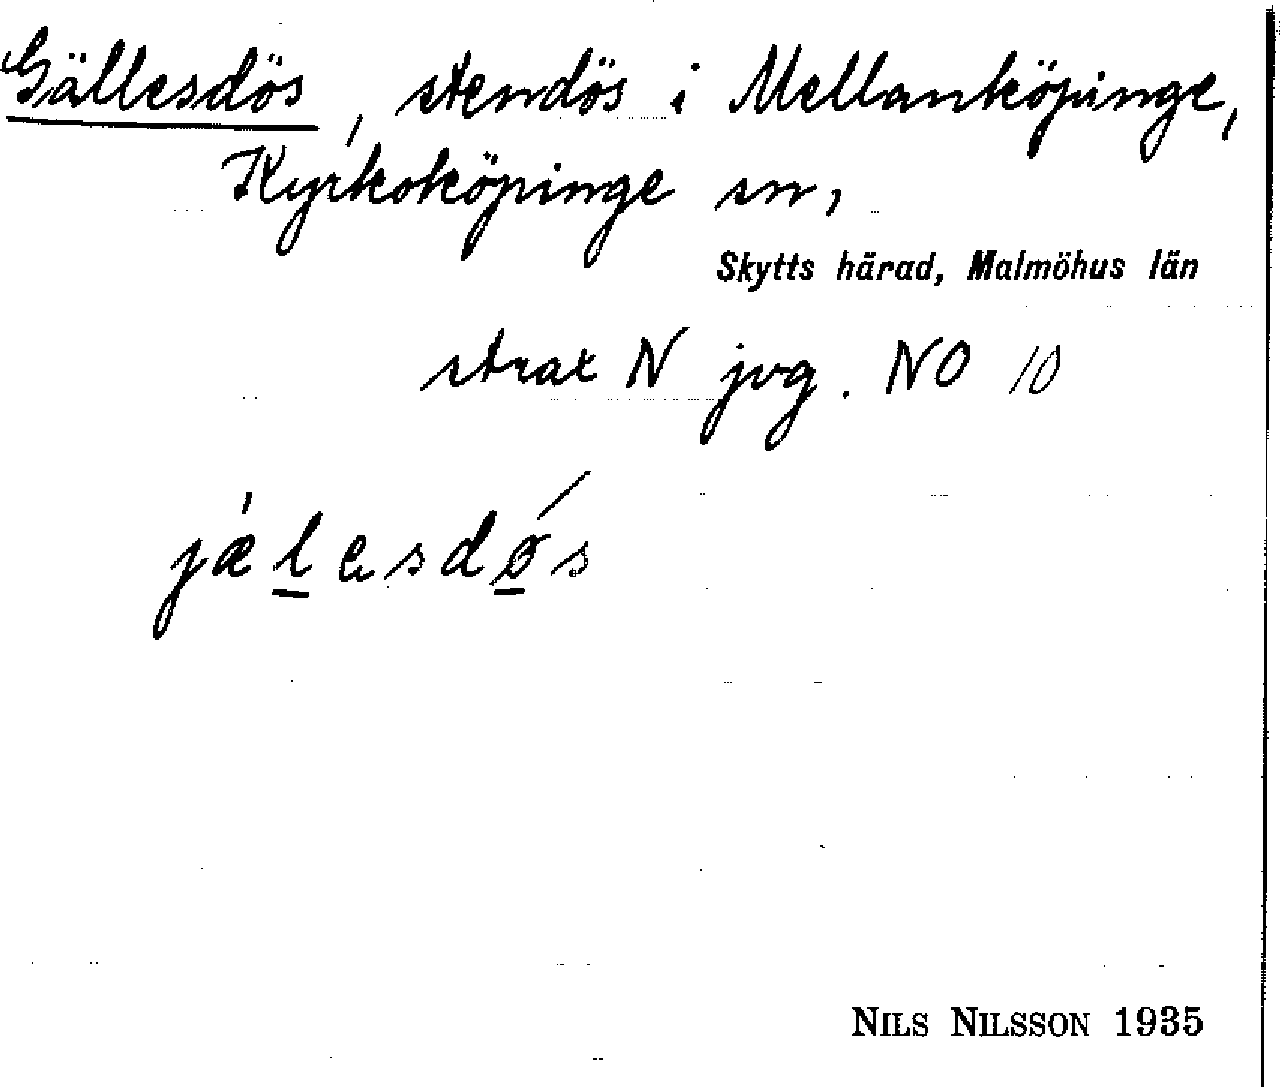 Gällesdös, stendös i Mellanköpinge,
Kyrkoköpinge sn,
Skytts härad, Malmöhus län
strax N jvg. NO 10
jælesdøs
NILS NILSSON 1935